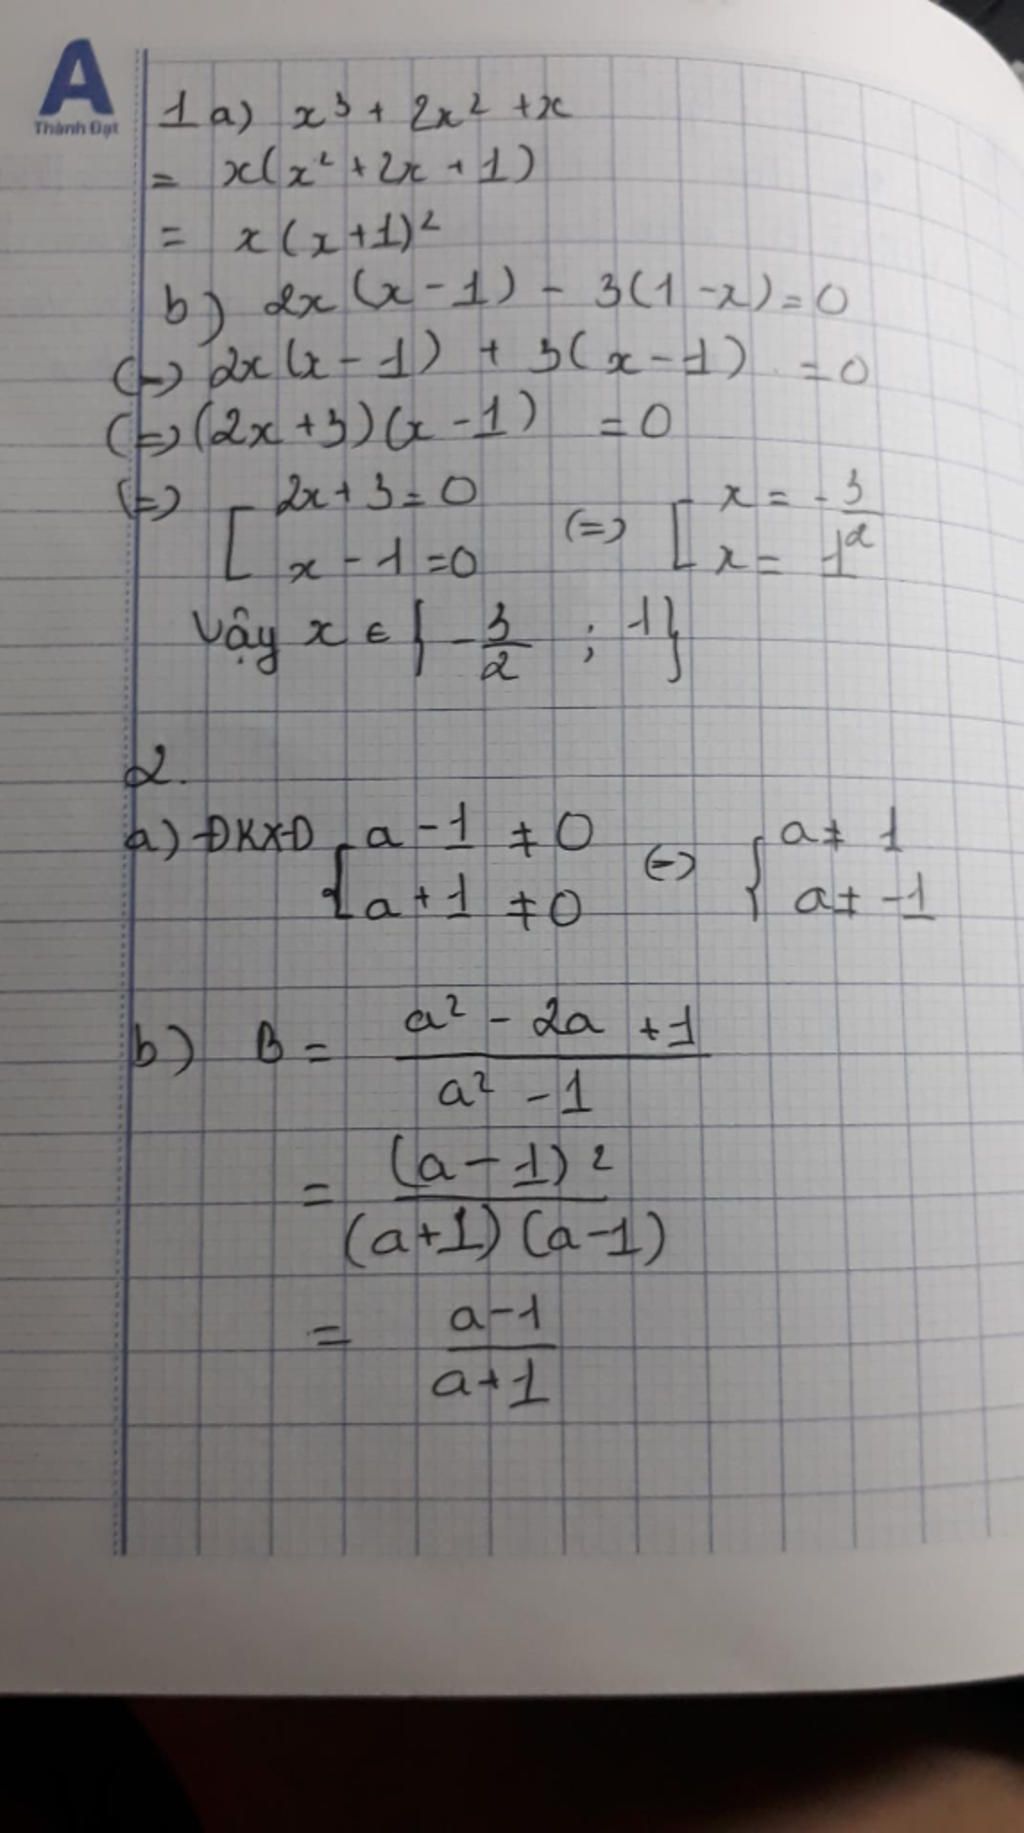 A
Thành Đạt
1 a) x³ + 2x² + x
= x(x² + 2x + 1)
= x(x+1)²
b) 2x(x - 1) - 3(1 - x) = 0
(=) 2x(x - 1) + 3(x - 1) = 0
(=) (2x + 3)(x - 1) = 0
(=) [ 2x + 3 = 0 (=) [ x = -3/2
x - 1 = 0 x = 1
Vậy x ∈ { -3/2 ; 1 }
2.
a) ĐKXĐ { a - 1 ≠ 0 (=) { a ≠ 1
a + 1 ≠ 0 a ≠ -1
b) B = (a² - 2a + 1)/(a² - 1)
= (a - 1)²/((a+1)(a-1))
= (a-1)/(a+1)